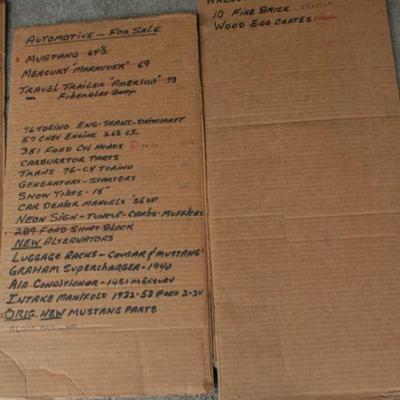 AUTOMOTIVE — FOR SALE
MUSTANG 64½
MERCURY "MARAUDER" 69
TRAVEL TRAILER "AMERIGO" 73
FIBERGLAS BODY
76 TORINO ENG-TRANS-DRIVESHAFT
57 CHEV ENGINE 265 CI.
351 FORD CYL HEADS
CARBURATOR PARTS
TRANS 76-C4 TORINO
GENERATORS-STARTERS
SNOW TIRES-15"
CAR DEALER MANUALS '56 UP
NEON SIGN-TUNEUP-CARBS-MUFFLERS
289 FORD SHORT BLOCK
NEW ALTERNATORS
LUGGAGE RACKS-COUGAR & MUSTANG
GRAHAM SUPERCHARGER-1940
AIR CONDITIONER-1951 MERCURY
INTAKE MANIFOLD 1932-53 FORD 2-2V
ORIG. NEW MUSTANG PARTS
10 FIRE BRICK
WOOD EGG CRATES